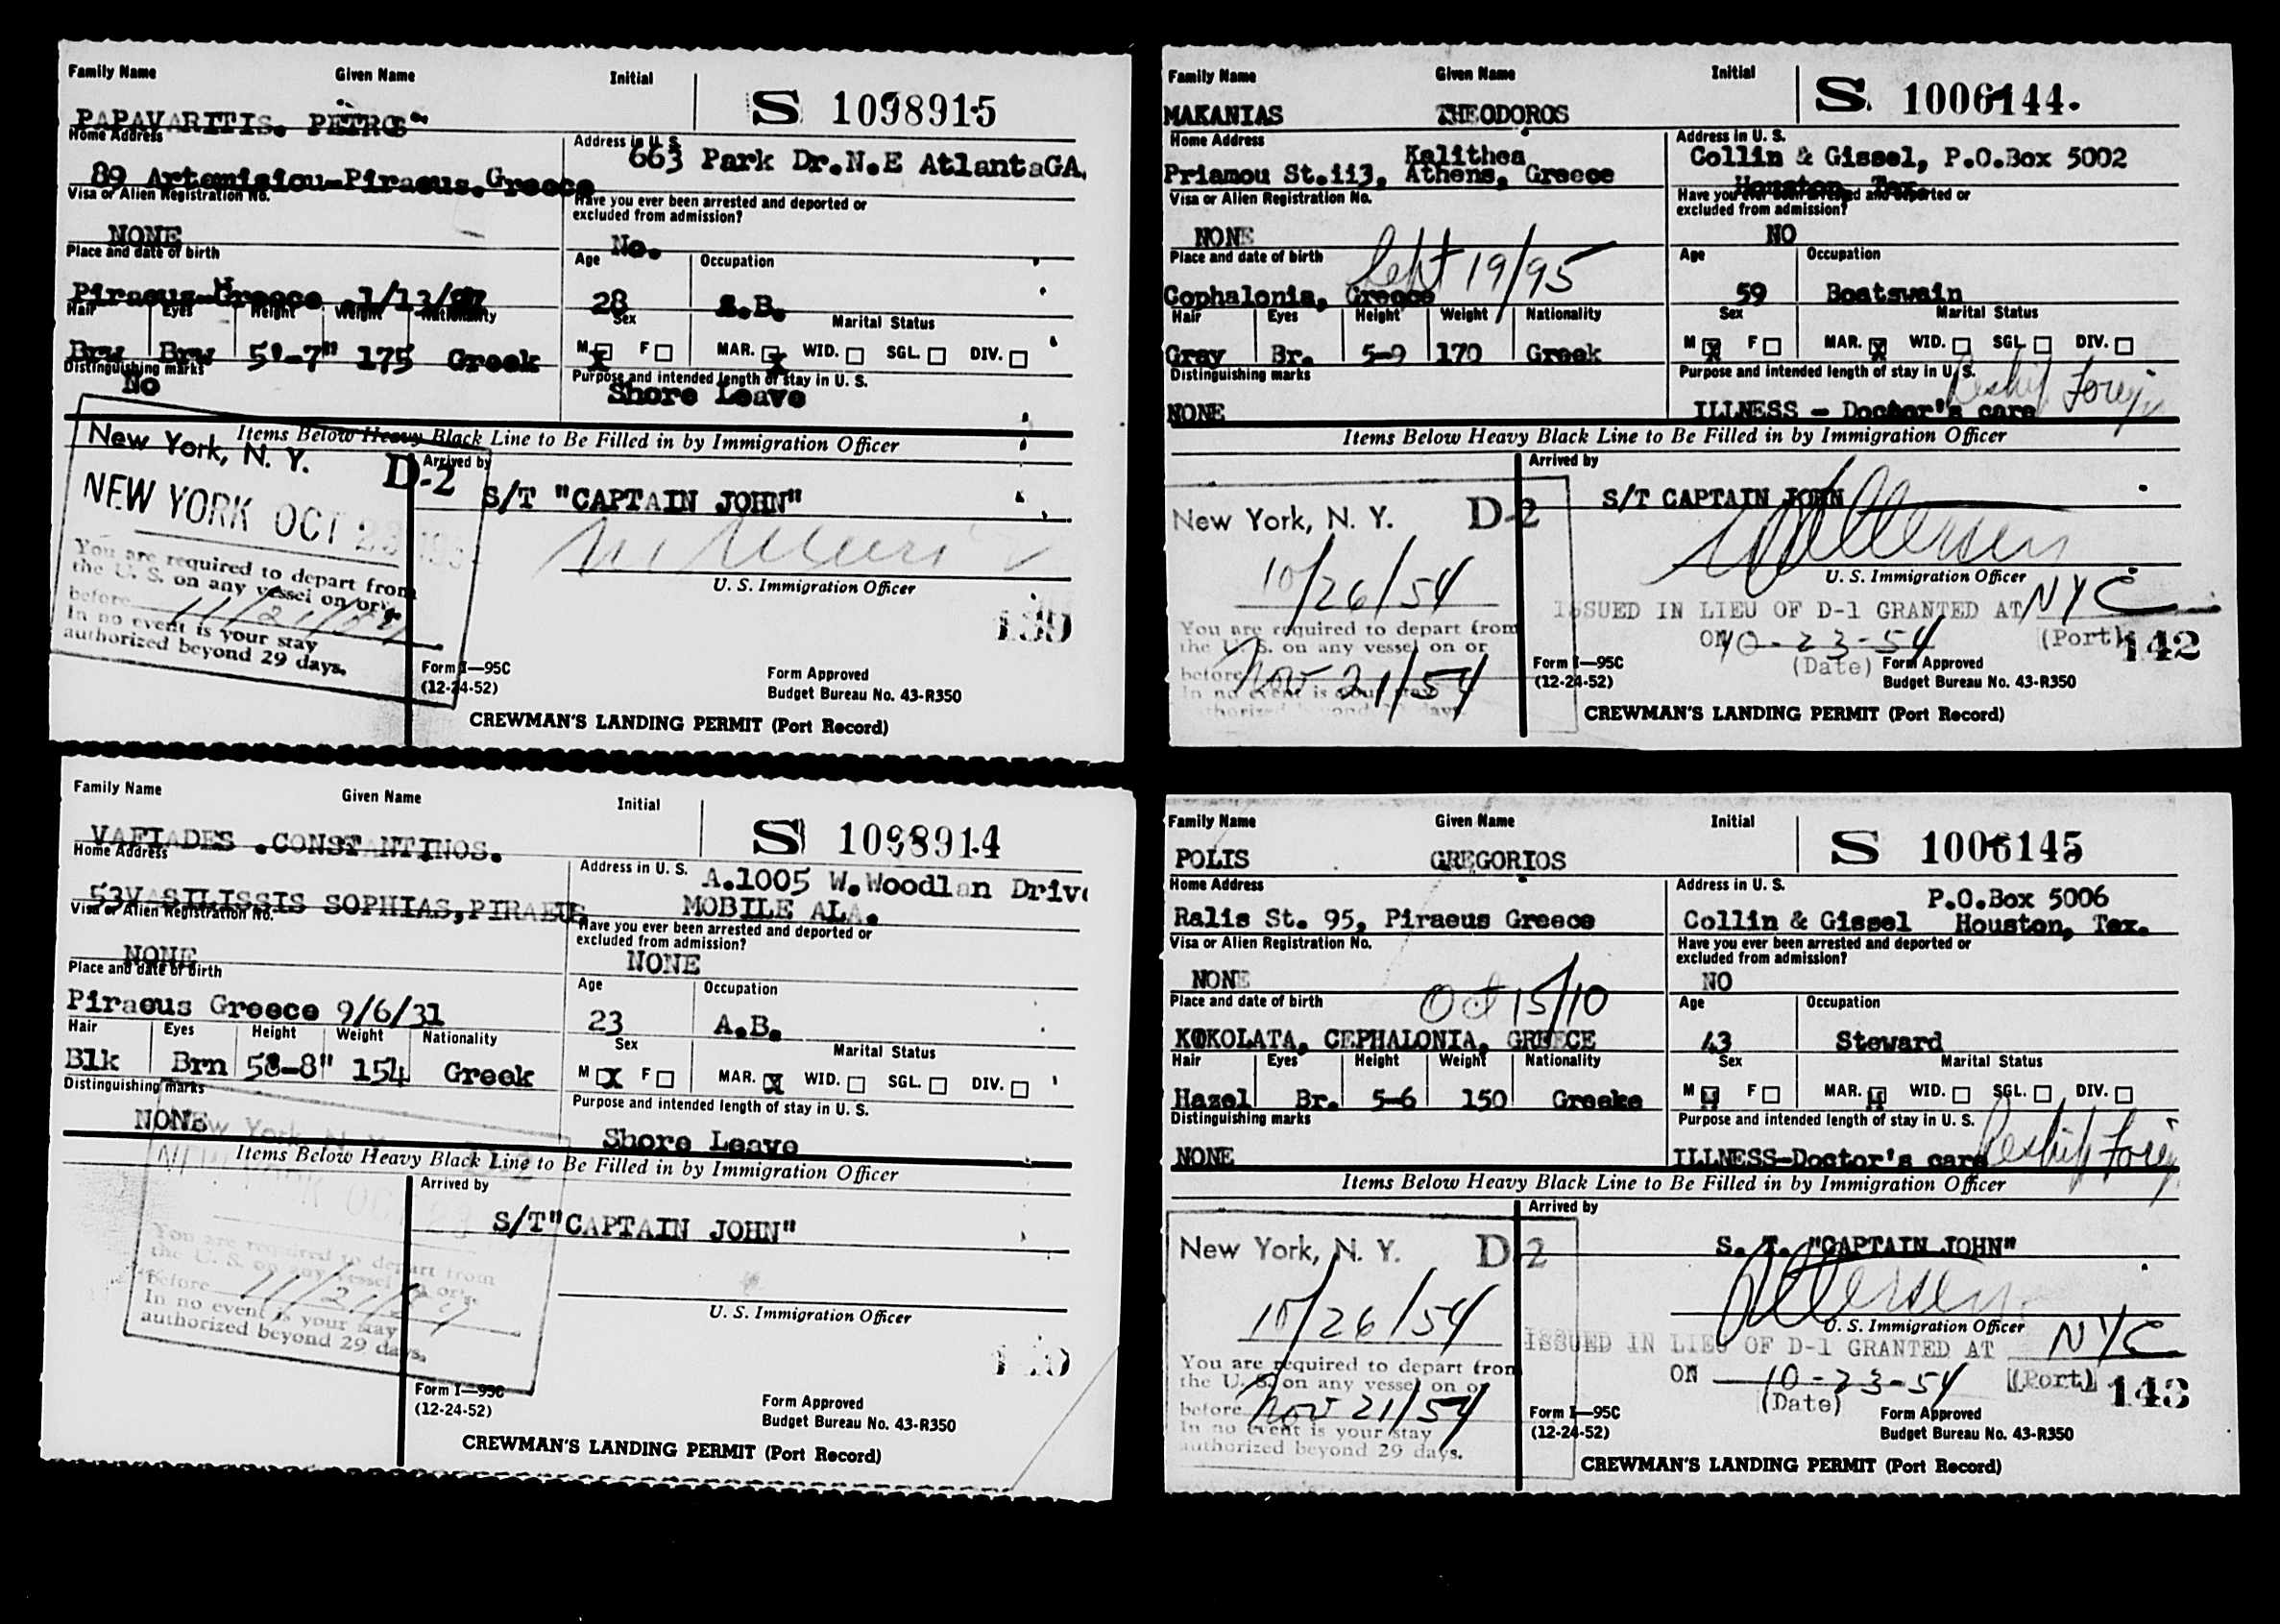 Family Name Given Name Initial
S 1098915
PAPAVARITIS. PETROS
Home Address
Address in U. S.
663 Park Dr.N.E AtlantaGA.
89 Artemisiou-Piraeus.Greece
Visa or Alien Registration No.
Have you ever been arrested and deported or
excluded from admission?
NONE
No.
Place and date of birth
Age Occupation
Piraeus-Greece 1/13/
28 A.B.
Hair Eyes Height Weight Nationality
Sex Marital Status
Brw Brw 5'-7" 175 Greek
M F MAR. WID. SGL. DIV.
Distinguishing marks
No
Purpose and intended length of stay in U. S.
Shore Leave
Items Below Heavy Black Line to Be Filled in by Immigration Officer
New York, N. Y. D-2
NEW YORK OCT 23
Arrived by
S/T "CAPTAIN JOHN"
You are required to depart from
the U. S. on any vessel on or
before 11/21/54
In no event is your stay
authorized beyond 29 days.
U. S. Immigration Officer
139
Form I—95C
(12-24-52)
Form Approved
Budget Bureau No. 43-R350
CREWMAN'S LANDING PERMIT (Port Record)
Family Name Given Name Initial
S 1006144
MAKANIAS THEODOROS
Home Address
Address in U. S.
Kalithea
Priamou St.113, Athens, Greece
Collin & Gissel, P.O.Box 5002
Houston, Tex.
Visa or Alien Registration No.
Have you ever been arrested and deported or
excluded from admission?
NONE
NO
Place and date of birth
Sept 19/95
Age Occupation
Cephalonia, Greece
59 Boatswain
Hair Eyes Height Weight Nationality
Sex Marital Status
Gray Br. 5-9 170 Greek
M X F MAR. X WID. SGL. DIV.
Distinguishing marks
Purpose and intended length of stay in U. S.
NONE
ILLNESS - Doctor's care Reship Foreign
Items Below Heavy Black Line to Be Filled in by Immigration Officer
Arrived by
S/T CAPTAIN JOHN
New York, N. Y. D-2
10/26/54
U. S. Immigration Officer
You are required to depart from
the U. S. on any vessel on or
before Nov 21/54
In no event is your stay
authorized beyond 29 days.
ISSUED IN LIEU OF D-1 GRANTED AT NYC
ON 10-23-54 (Port)
(Date)
142
Form I—95C
(12-24-52)
Form Approved
Budget Bureau No. 43-R350
CREWMAN'S LANDING PERMIT (Port Record)
Family Name Given Name Initial
S 1098914
VAFIADES .CONSTANTINOS.
Home Address
Address in U. S.
A.1005 W.Woodlan Drive
MOBILE ALA.
53VASILISSIS SOPHIAS,PIRAEUS
Visa or Alien Registration No.
Have you ever been arrested and deported or
excluded from admission?
NONE
NONE
Place and date of birth
Age Occupation
Piraeus Greece 9/6/31
23 A.B.
Hair Eyes Height Weight Nationality
Sex Marital Status
Blk Brn 58-8" 154 Greek
M X F MAR. X WID. SGL. DIV.
Distinguishing marks
Purpose and intended length of stay in U. S.
NONE
Shore Leave
Items Below Heavy Black Line to Be Filled in by Immigration Officer
Arrived by
S/T"CAPTAIN JOHN"
New York, N. Y. D-2
NEW YORK OCT 23
You are required to depart from
the U. S. on any vessel on or
before 11/21/54
In no event is your stay
authorized beyond 29 days.
U. S. Immigration Officer
Form I—95C
(12-24-52)
Form Approved
Budget Bureau No. 43-R350
CREWMAN'S LANDING PERMIT (Port Record)
Family Name Given Name Initial
S 1006145
POLIS GREGORIOS
Home Address
Address in U. S.
P.O.Box 5006
Ralis St. 95, Piraeus Greece
Collin & Gissel Houston, Tex.
Visa or Alien Registration No.
Have you ever been arrested and deported or
excluded from admission?
NONE
NO
Place and date of birth
Oct 15/10
Age Occupation
KOKOLATA, CEPHALONIA, GREECE
43 Steward
Hair Eyes Height Weight Nationality
Sex Marital Status
Hazel Br. 5-6 150 Greeke
M F MAR. WID. SGL. DIV.
Distinguishing marks
Purpose and intended length of stay in U. S.
NONE
ILLNESS-Doctor's care Reship Foreign
Items Below Heavy Black Line to Be Filled in by Immigration Officer
Arrived by
S. T. "CAPTAIN JOHN"
New York, N. Y. D-2
10/26/54
U. S. Immigration Officer
You are required to depart from
the U. S. on any vessel on or
before Nov 21/54
In no event is your stay
authorized beyond 29 days.
ISSUED IN LIEU OF D-1 GRANTED AT NYC
ON 10-23-54 (Port)
(Date)
143
Form I—95C
(12-24-52)
Form Approved
Budget Bureau No. 43-R350
CREWMAN'S LANDING PERMIT (Port Record)